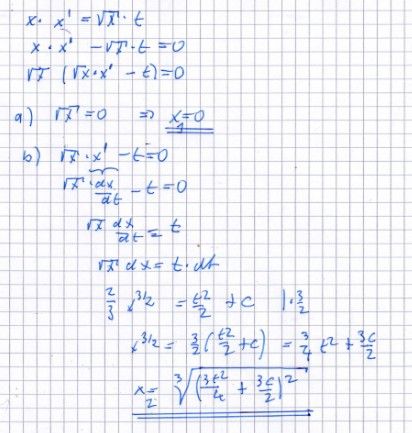 x · x' = √x · t
x · x' − √x · t = 0
√x (√x · x' − t) = 0
a) √x = 0 ⇒ x₁ = 0
b) √x · x' − t = 0
√x · dx/dt − t = 0
√x dx/dt = t
√x dx = t · dt
2/3 x^3/2 = t²/2 + c | · 3/2
x^3/2 = 3/2 (t²/2 + c) = 3/4 t² + 3c/2
x₂ = ∛(3t²/4 + 3c/2)²